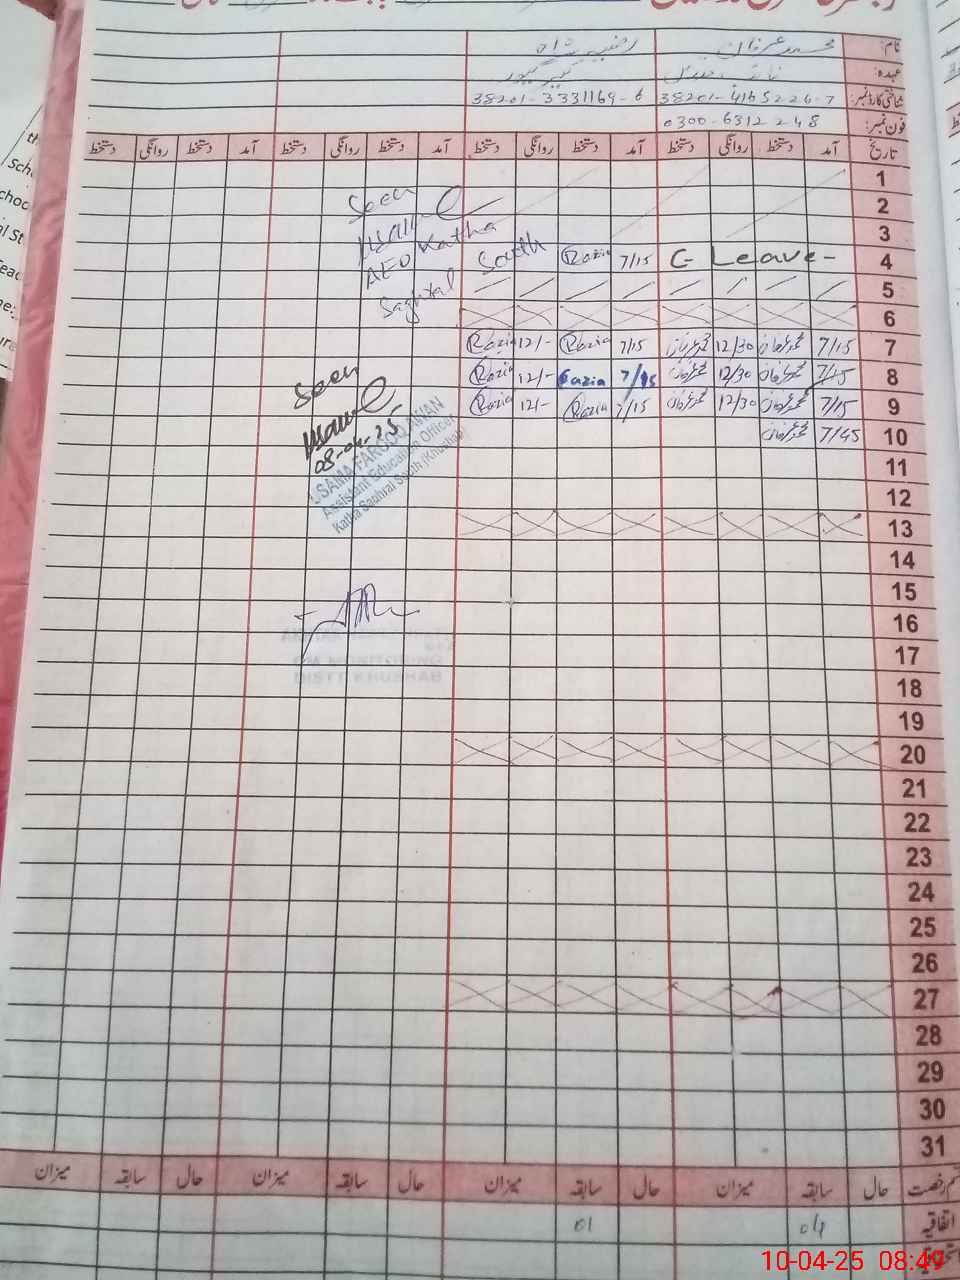 نام: محمد عرفان
عہدہ: نائب
شناختی کارڈ نمبر: 38201-4165226-7 38201-3331169-6
فون نمبر: 0300-6312248
تاریخ آمد دستخط روانگی دستخط آمد دستخط روانگی دستخط آمد دستخط روانگی دستخط آمد دستخط روانگی دستخط
1
2 Seen
3 Katha
4 C-Leave- 7/15 Razia South AEO
5
6
7 7/15 محمد عرفان 12/30 محمد عرفان 7/15 Razia 12/- Razia
8 7/15 محمد عرفان 12/30 محمد عرفان 7/15 Razia 12/- Razia Seen
9 7/15 محمد عرفان 12/30 محمد عرفان 7/15 Razia 12/- Razia
10 7/45 محمد عرفان 08-04-25
USAMA FAROOQ AWAN
Assistant Education Officer
Katha Saghral South (Khushab)
11
12
13
14
15
16
17
DM MONITORING
DISTT KHUSHAB
18
19
20
21
22
23
24
25
26
27
28
29
30
31
قسم رخصت حال سابقہ میزان حال سابقہ میزان حال سابقہ میزان حال سابقہ میزان
اتفاقیہ 04 01
10-04-25 08:49